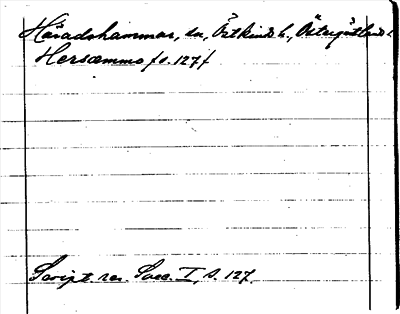 Häradshammar, sn, Östkinds h., Östergötlands l.
Hersæmmo fo. 127f
Script. rer. Svec. I, s. 127.